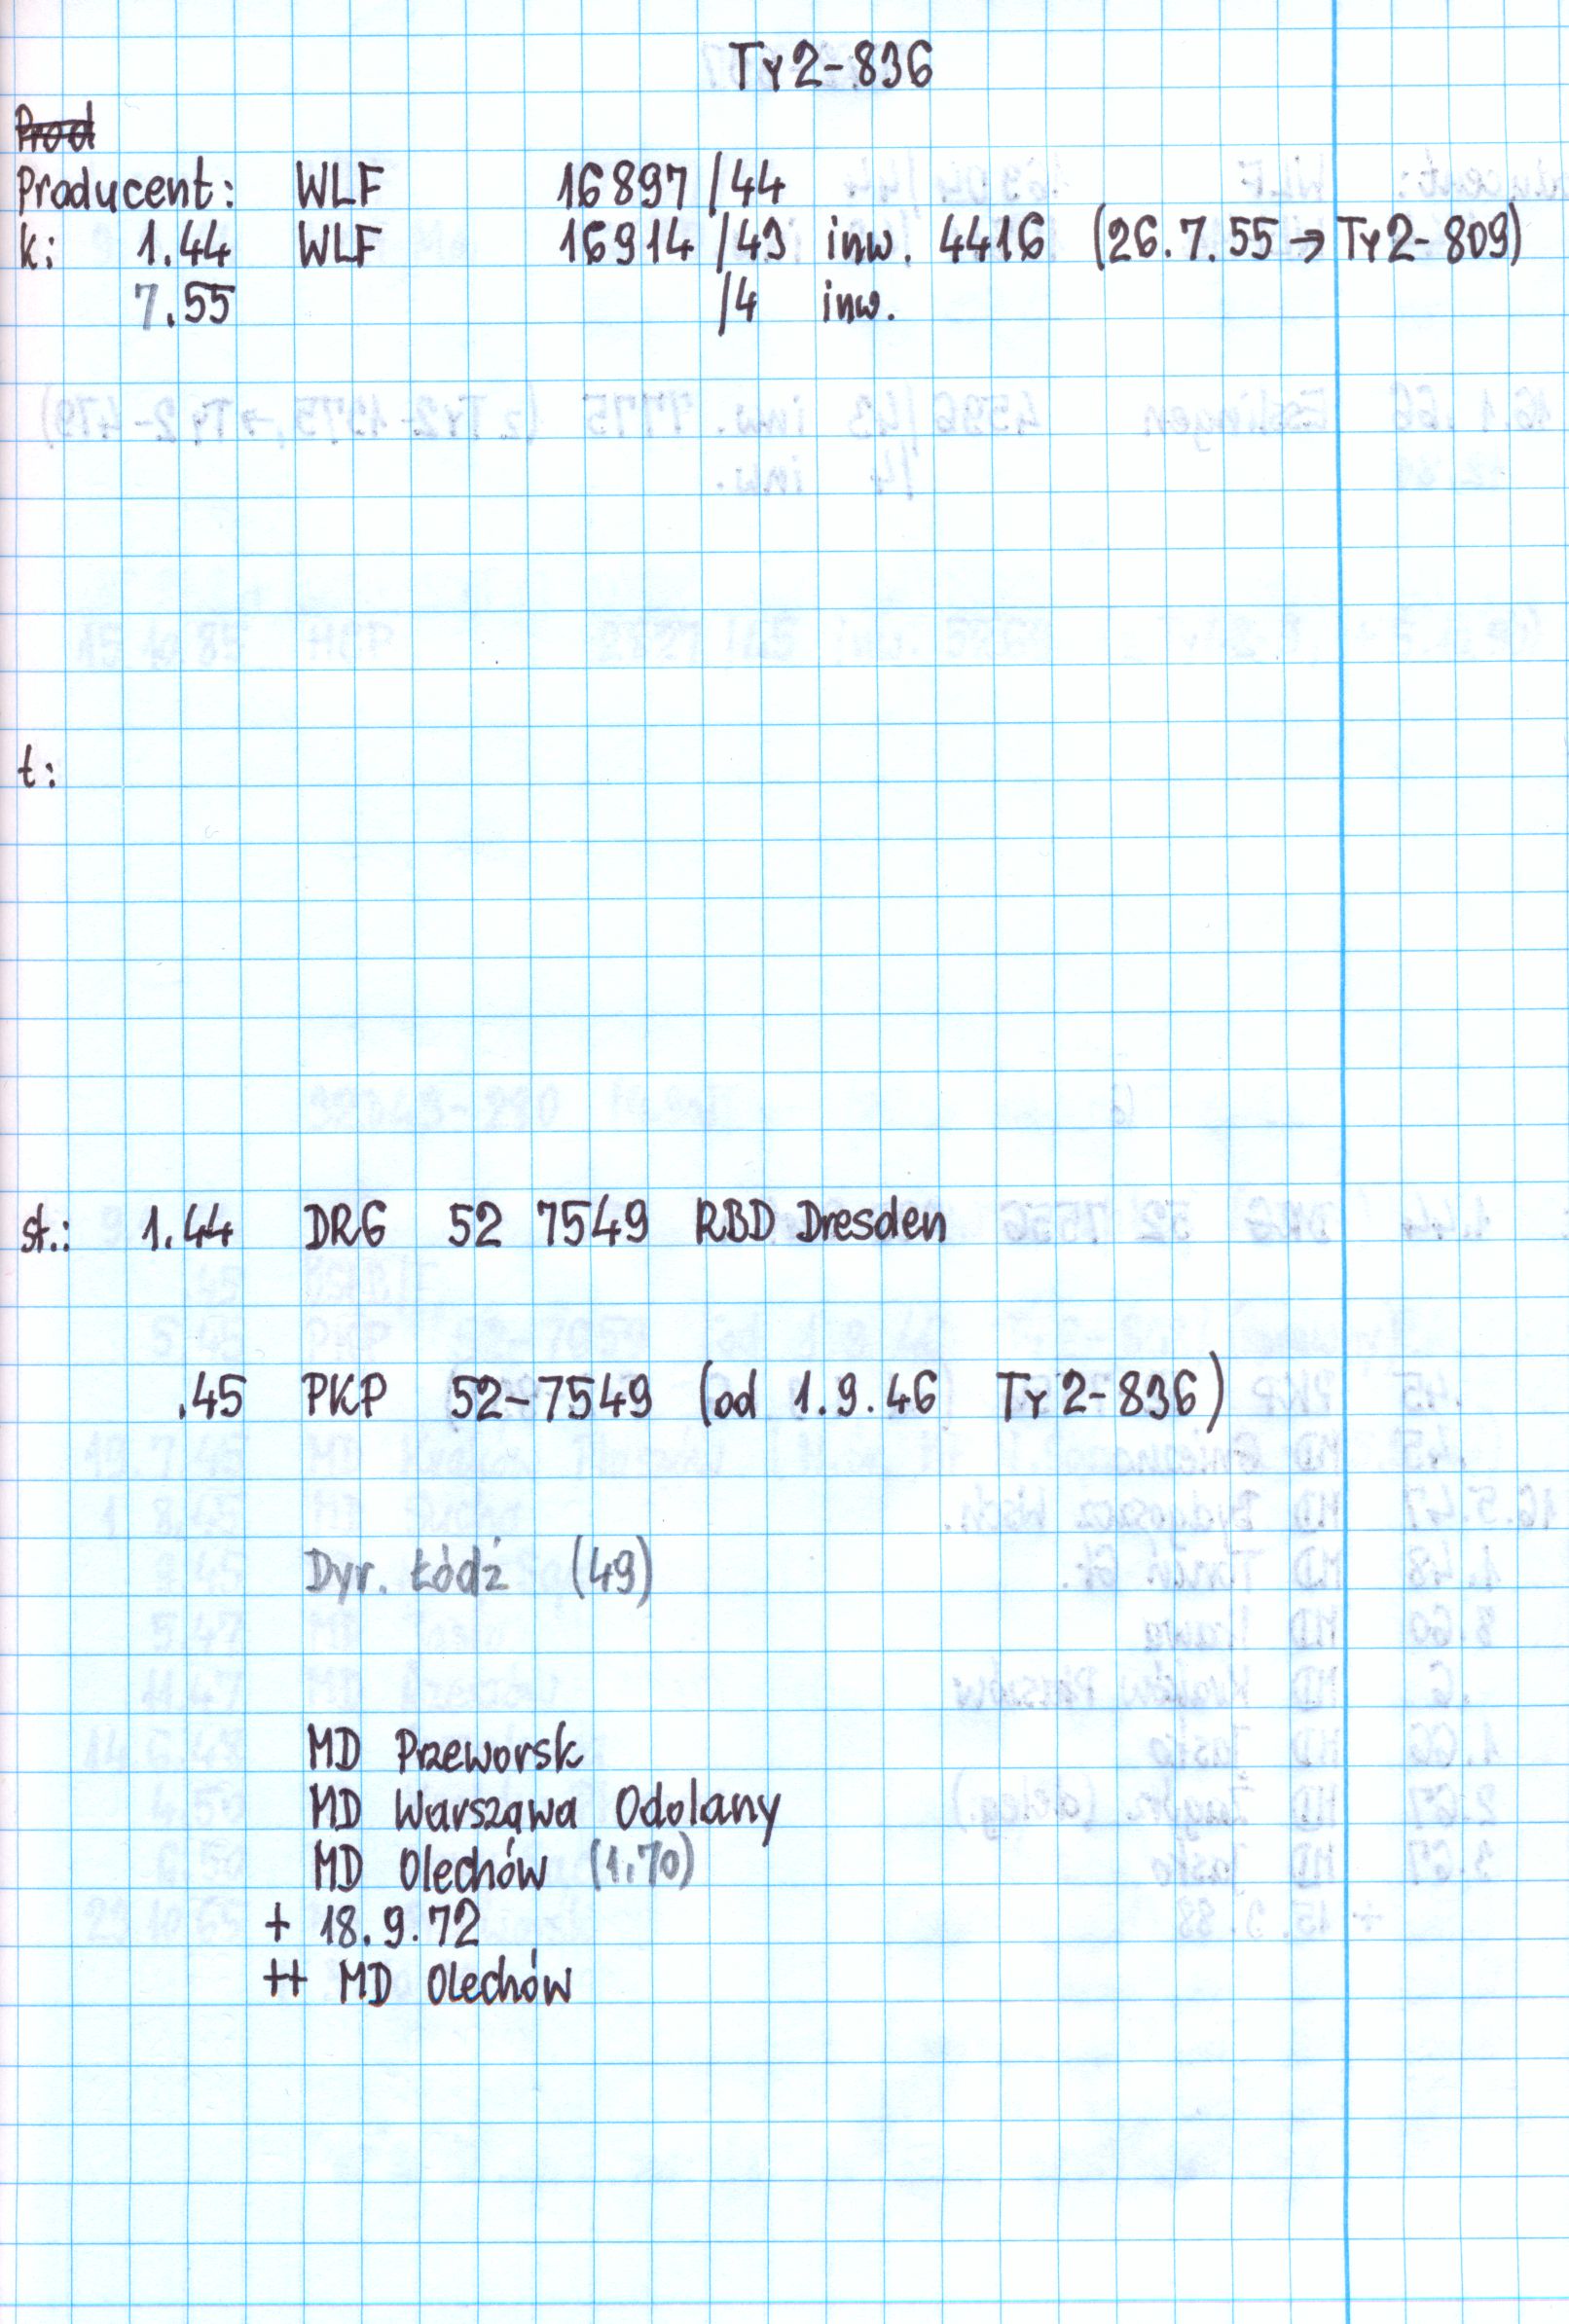 Ty2-836
Prod
Producent: WLF 16897/44
k: 1.44 WLF 16914/43 inw. 4416 (26.7.55 → Ty2-809)
7.55 /4 inw.
t:
st.: 1.44 DRG 52 7549 RBD Dresden
.45 PKP 52-7549 (od 1.9.46 Ty2-836)
Dyr. Łódź (49)
MD Przeworsk
MD Warszawa Odolany
MD Olechów (1.70)
+ 18.9.72
++ MD Olechów